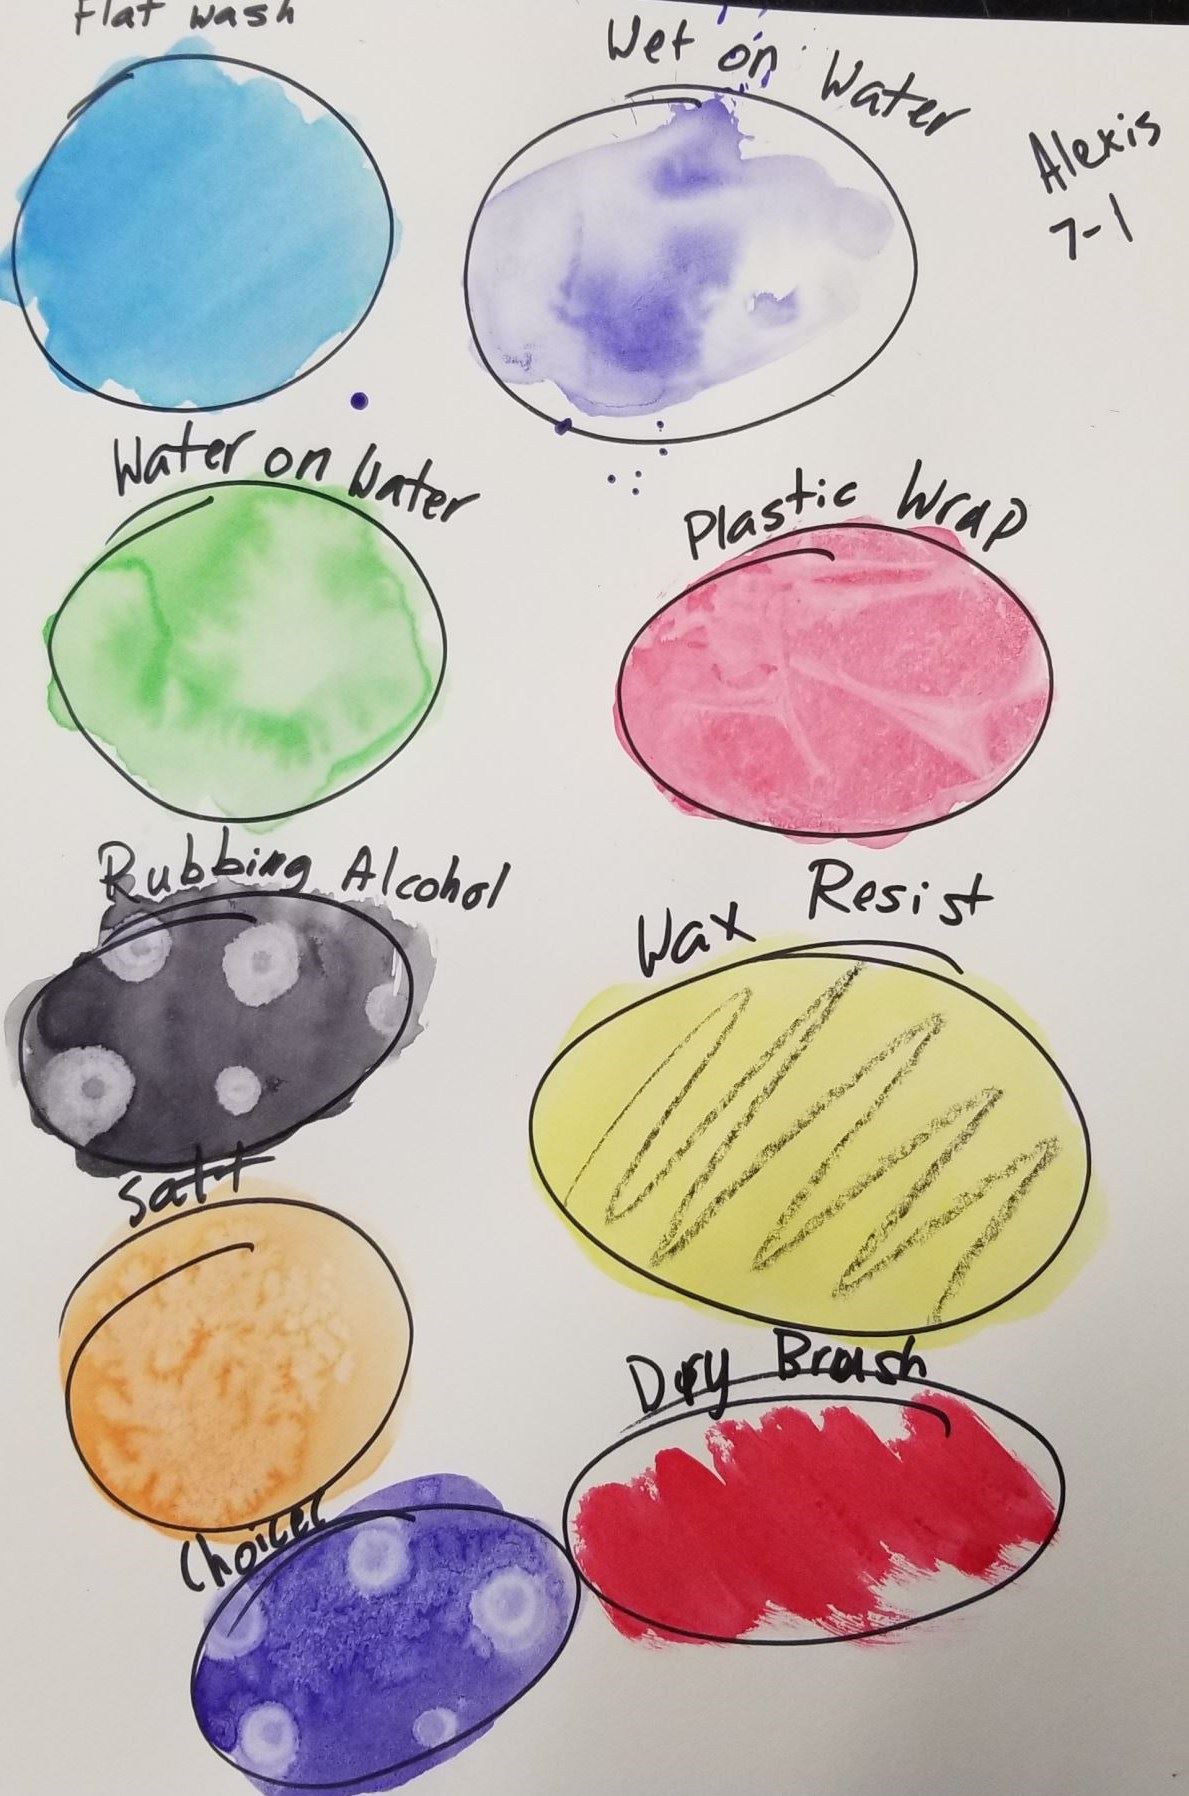 Flat wash
Wet on Water
Alexis
7-1
Water on Water
Plastic Wrap
Rubbing Alcohol
Wax Resist
Salt
Dry Brush
Choices